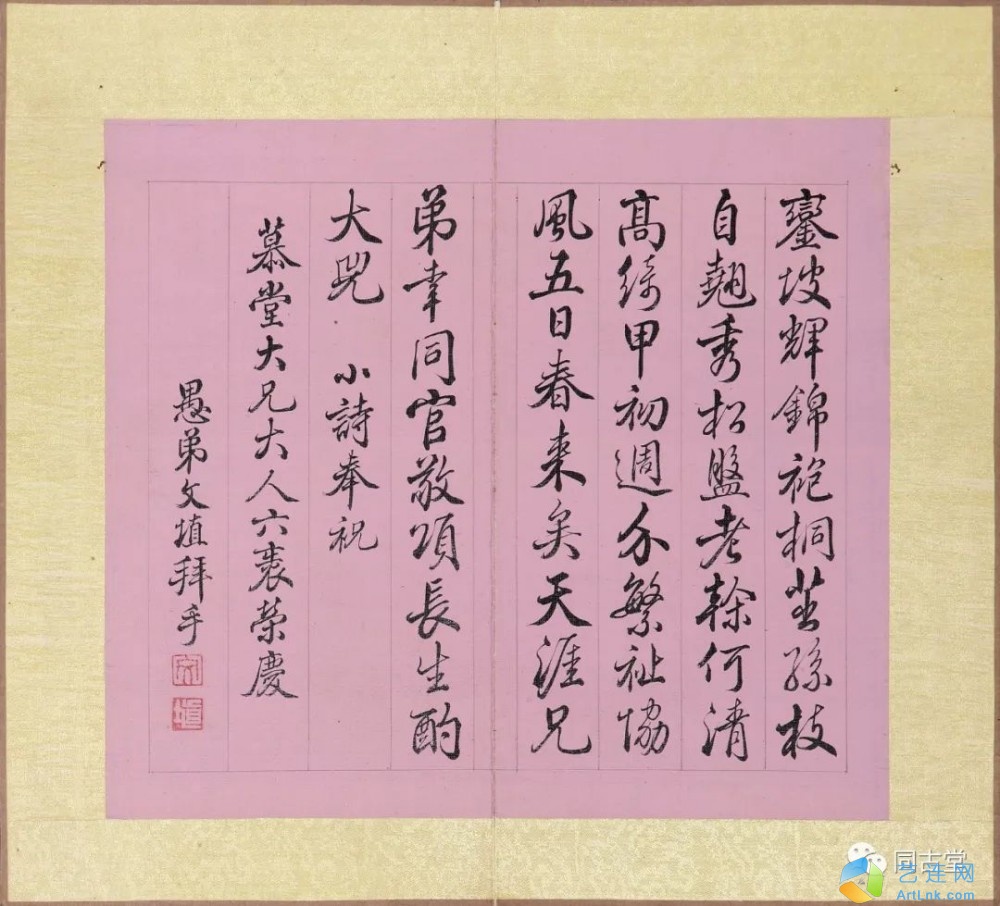 鑾坡輝錦袍桐茁孫枝
自翹秀松盤老榦何清
高綺甲初週介繁祉協
風五日春来矣天涯兄
弟幸同官敬頌長生酌
大兕 小詩奉祝
慕堂大兄大人六袠榮慶
愚弟文埴拜手
同古堂
艺连网
ArtLnk.com